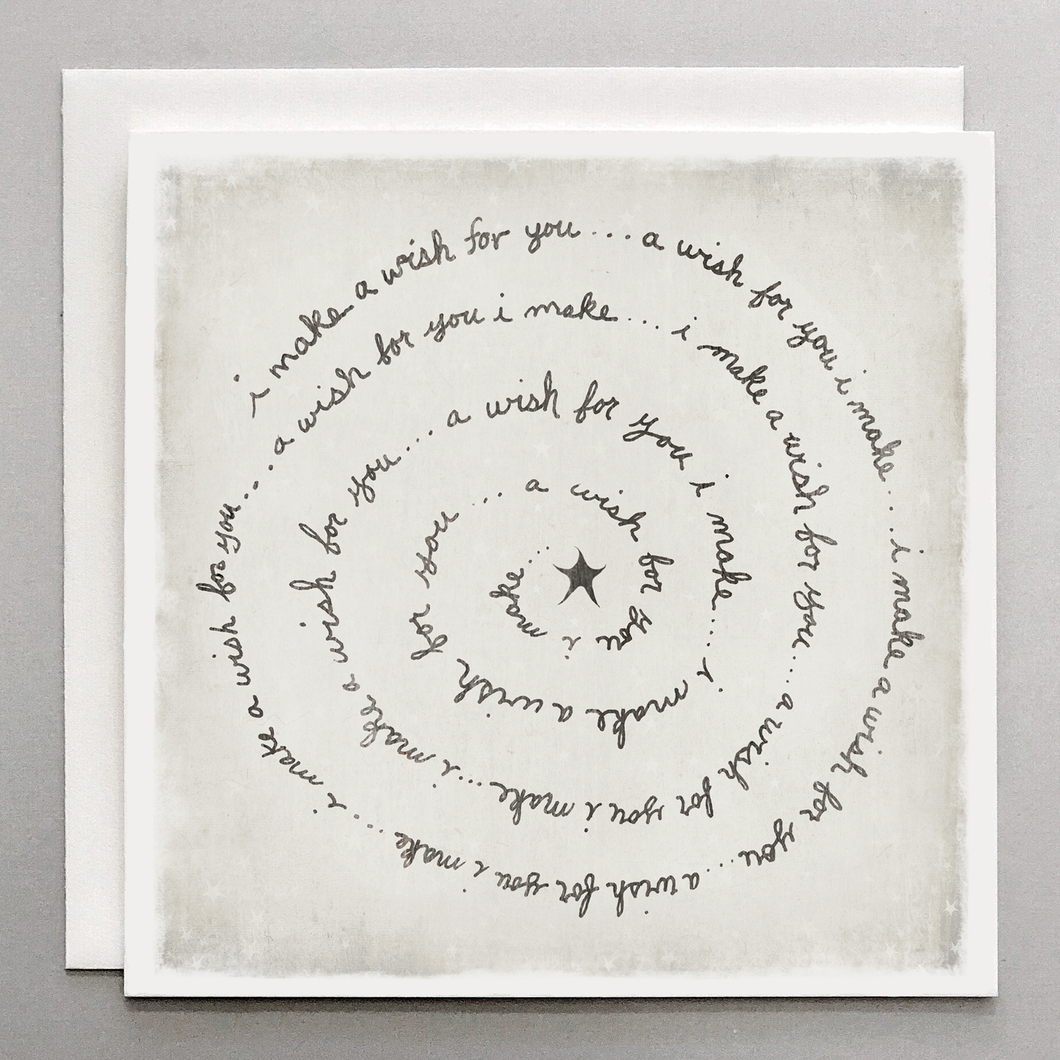 i make a wish for you... a wish for you i make... i make a wish for you... a wish for you i make.... i make a wish for you... a wish for you i make... i make a wish for you... a wish for you i make... i make a wish for you... a wish for you i make.... i make a wish for you... a wish for you i make...